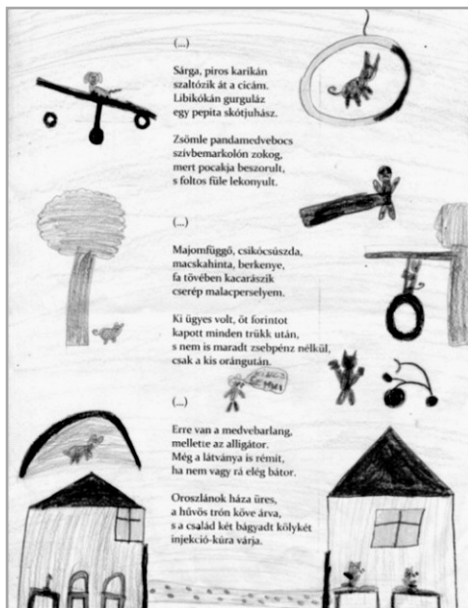 (...)
Sárga, piros karikán
szaltózik át a cicám.
Libikókán gurguláz
egy pepita skótjuhász.
Zsömle pandamedvebocs
szívbemarkolón zokog,
mert pocakja beszorult,
s foltos füle lekonyult.
(...)
Majomfüggő, csikócsúszda,
macskahinta, berkenye,
fa tövében kacarászik
cserép malacperselyem.
Ki ügyes volt, öt forintot
kapott minden trükk után,
s nem is maradt zsebpénz nélkül,
csak a kis orángután.
(...)
Erre van a medvebarlang,
mellette az alligátor.
Még a látványa is rémít,
ha nem vagy rá elég bátor.
Oroszlánok háza üres,
a hűvös trón köve árva,
s a család két bágyadt kölykét
injekció-kúra várja.